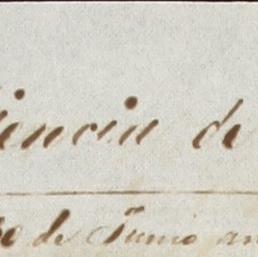 iencia de
30 de Junio an